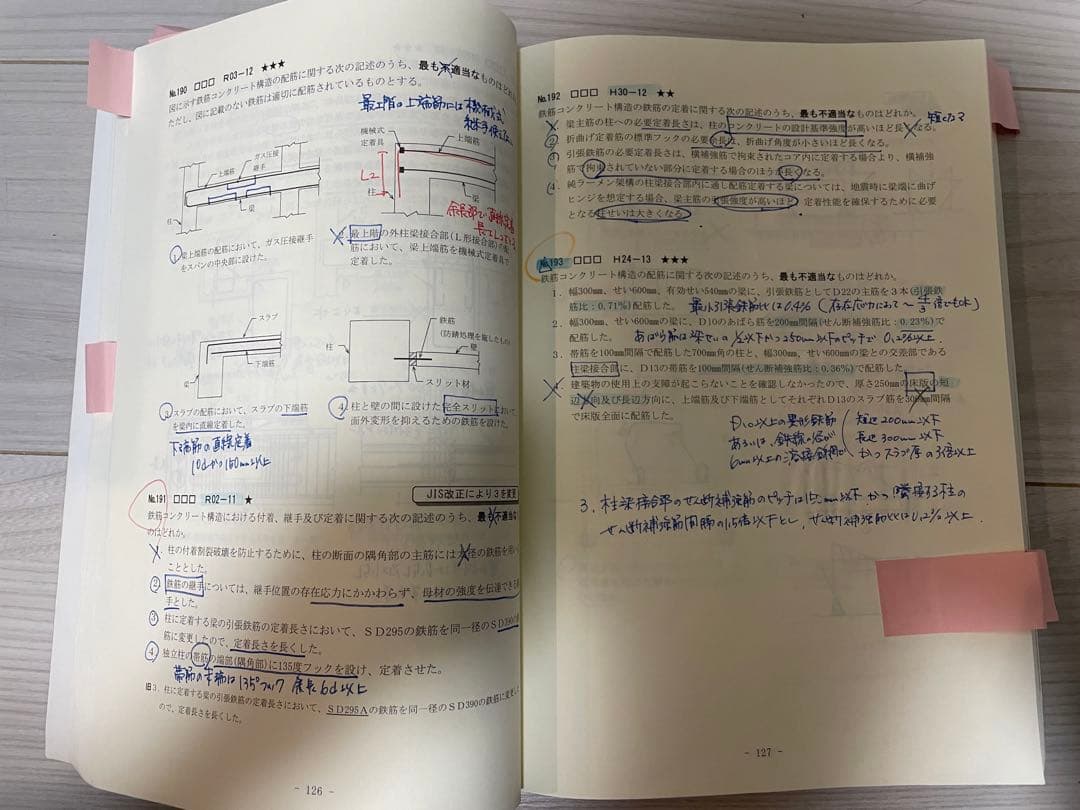 No.190 □□□ R03-12 ★★★
図に示す鉄筋コンクリート構造の配筋に関する次の記述のうち、最も不適当なものはどれか。
ただし、図に記載のない鉄筋は適切に配筋されているものとする。
最上階の上端筋には機械式
ガス圧接
継手
上端筋
柱
梁
1. 梁上端筋の配筋において、ガス圧接継手
をスパンの中央部に設けた。
機械式
定着具
上端筋
L2
柱
梁
余長部で直線定着
2. 最上階の外柱梁接合部(L形接合部)の配
筋において、梁上端筋を機械式定着具で
定着した。
スラブ
下端筋
梁
3. スラブの配筋において、スラブの下端筋
を梁内に直線定着した。
下端筋の直線定着
10dかつ150mm以上
柱
鉄筋
(防錆処理を施したもの)
壁
スリット材
4. 柱と壁の間に設けた完全スリットにおいて
面外変形を抑えるための鉄筋を設けた。
No.191 □□□ R02-11 ★
JIS改正により3を変更
鉄筋コンクリート構造における付着、継手及び定着に関する次の記述のうち、最も不適当な
ものはどれか。
1. 柱の付着割裂破壊を防止するために、柱の断面の隅角部の主筋には太径の鉄筋を用い
ることとした。
2. 鉄筋の継手については、継手位置の存在応力にかかわらず、母材の強度を伝達できる
手とした。
3. 柱に定着する梁の引張鉄筋の定着長さにおいて、SD295の鉄筋を同一径のSD390の
筋に変更したので、定着長さを長くした。
4. 独立柱の帯筋の端部(隅角部)に135度フックを設け、定着させた。
帯筋の末端は135°フック 余長6d以上
旧3. 柱に定着する梁の引張鉄筋の定着長さにおいて、SD295Aの鉄筋を同一径のSD390の鉄筋に変更した
ので、定着長さを長くした。
- 126 -
No.192 □□□ H30-12 ★★
鉄筋コンクリート構造の鉄筋の定着に関する次の記述のうち、最も不適当なものはどれか。
短くなる
1. 梁主筋の柱への必要定着長さは、柱のコンクリートの設計基準強度が高いほど長くなる。
2. 折曲げ定着筋の標準フックの必要余長は、折曲げ角度が小さいほど長くなる。
3. 引張鉄筋の必要定着長さは、横補強筋で拘束されたコア内に定着する場合より、横補強
筋で拘束されていない部分に定着する場合のほうが長くなる。
4. 純ラーメン架構の柱梁接合部内に通し配筋定着する梁については、地震時に梁端に曲げ
ヒンジを想定する場合、梁主筋の引張強度が高いほど、定着性能を確保するために必要
となる柱せいは大きくなる。
No.193 □□□ H24-13 ★★★
鉄筋コンクリート構造の配筋に関する次の記述のうち、最も不適当なものはどれか。
1. 幅300mm、せい600mm、有効せい540mmの梁に、引張鉄筋としてD22の主筋を3本(引張鉄
筋比:0.71%)配筋した。
最小引張鉄筋比は0.4% (存在応力によって〜4/3倍でもOK)
2. 幅300mm、せい600mmの梁に、D10のあばら筋を200mm間隔(せん断補強筋比:0.23%)で
配筋した。
あばら筋は梁せいの1/2以下かつ250mm以下のピッチで 0.2%以上。
3. 帯筋を100mm間隔で配筋した700mm角の柱と、幅300mm、せい600mmの梁との交差部である
柱梁接合部に、D13の帯筋を100mm間隔(せん断補強筋比:0.36%)で配筋した。
4. 建築物の使用上の支障が起こらないことを確認しなかったので、厚さ250mmの床版の短
辺方向及び長辺方向に、上端筋及び下端筋としてそれぞれD13のスラブ筋を300mm間隔
で床版全面に配筋した。
D10以上の異形鉄筋
あるいは、鉄線の径が
6mm以上の溶接金網
短辺200mm以下
長辺300mm以下
かつスラブ厚の3倍以上
3. 柱梁接合部のせん断補強筋のピッチは150mm以下かつ隣接する柱の
せん断補強筋間隔の1.5倍以下とし、せん断補強筋比は0.2%以上。
- 127 -